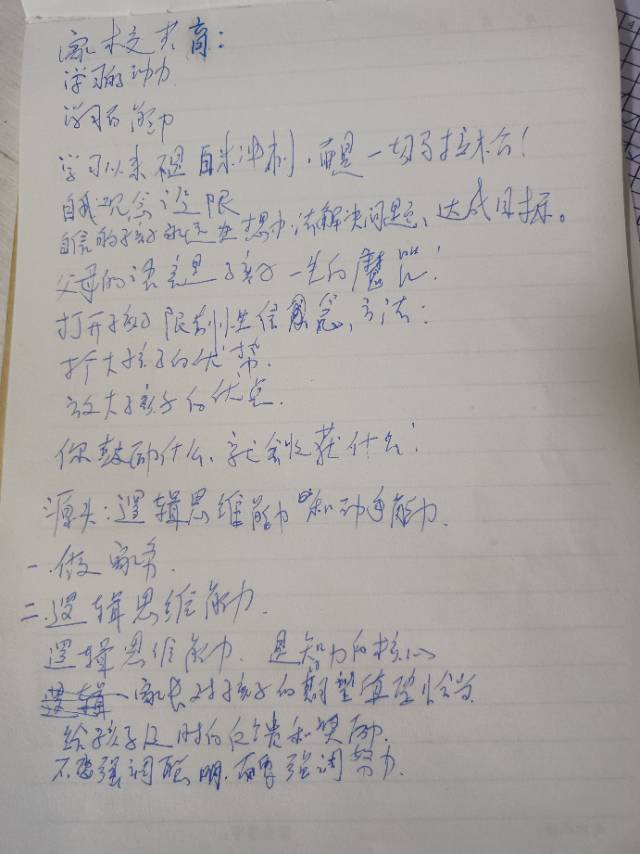 家校共商：
学习的动力
学习的能力
学习从来不是百米冲刺，而是一切马拉松！
自我观念设限
自信的孩子永远在想办法解决问题、达成目标。
父母的话就是孩子一生的魔咒！
打开孩子限制性信念，方法：
扩大孩子的优势.
放大孩子的优点.
你鼓励什么、就会收获什么！
源头：逻辑思维能力和动手能力.
一.做家务.
二.逻辑思维能力.
逻辑思维能力.是智力的核心
家长对孩子的期望值要恰当
给孩子及时的反馈和奖励.
不要强调聪明.而要强调努力.